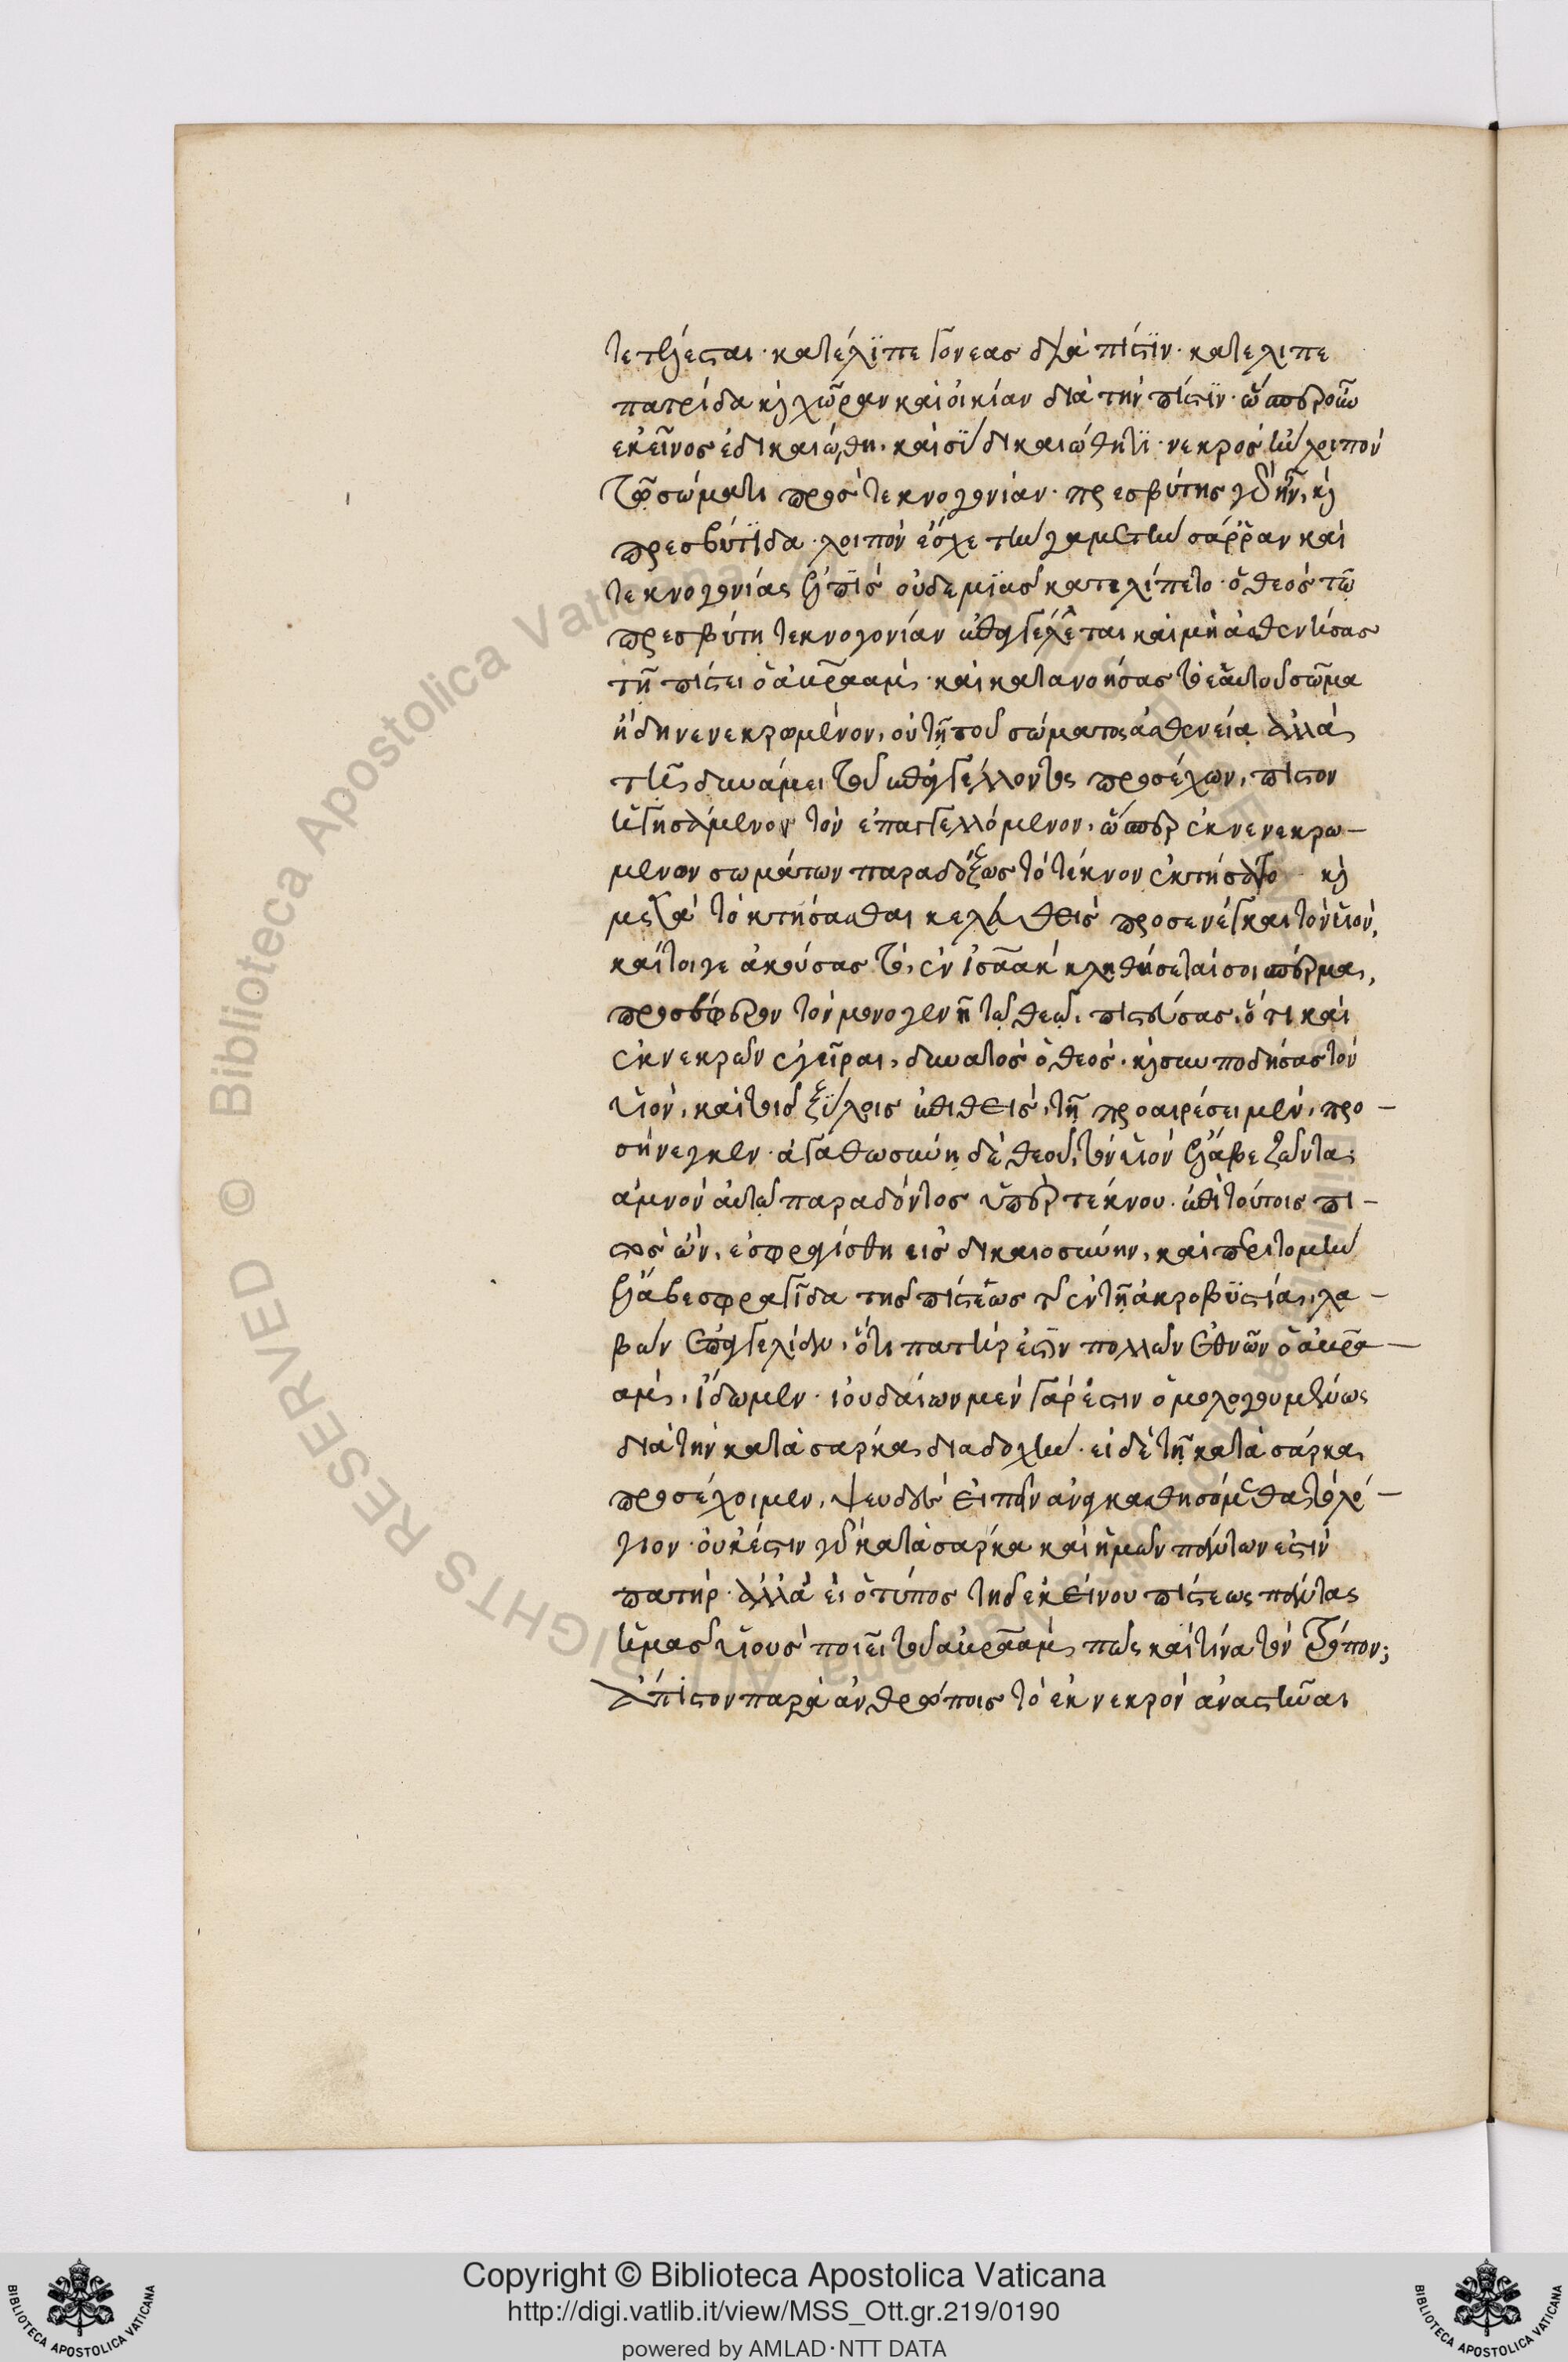 τετέλεσται· κατέλϊπε γονεασ διὰ πίστϊν· κατελιπε
πατρίδα καὶ χῶραν καὶ οἰκίαν διὰ τὴν πίστϊν· ὥσπερ οὖν
ἐκεῖνος ἐδικαιώθη, καὶ σὺ δικαιώθητϊ· νεκρὸς ἦν λοιπὸν
τῷ σώματι πρὸς τεκνογονίαν· πρεσβύτης γὰρ ἦν, καὶ
πρεσβύτϊδα λοιπὸν ἔσχε τὴν γαμετὴν σάρραν καὶ
τεκνογονίας ἐλπὶς οὐδεμϊᾶς κατελίπετο· ὁ θεὸς τῶ
πρεσβύτη τεκνογονίαν ἐπαγγέλεται καὶ μὴ ἀσθενήσας
τῇ πίστει ὁ ἀβραὰμ, καὶ κατανοήσας τὸ ἑαυτοῦ σῶμα
ἤδη νενεκρωμένον, οὐ τῇ τοῦ σώματος ἀσθενεία ἀλλὰ
τῇ δυνάμει τοῦ ἐπαγγέλλοντος προσέχων, πιστον
ἡγησάμενον τὸν ἐπαγγελλόμενον, ὥσπερ ἐκ νενεκρω-
μενων σωμάτων παραδόξως τὸ τέκνον ἐκτήσατο καὶ
μετὰ τὸ κτήσασθαι κελευσθεὶς προσενέγκαι τὸν υἱὸν,
καίτοιγε ἀκούσας τὸ, ἐν ἰσαὰκ κληθήσεταί σοι σπέρμα,
προσέφερον τὸν μονογενῆ τῷ θεῷ, πιστεύσας, ὅτι καὶ
ἐκ νεκρῶν ἐγεῖραι, δυνατὸς ὁ θεός. καὶ συμποδήσας τὸν
υἱὸν, καὶ τοῖς ξύλοις ἐπιθεὶς, τῇ προαιρέσει μὲν, προ-
σήνεγκεν· ἀγαθωσύνη δὲ θεοῦ, τὸν υἱὸν ἔλαβε ζῶντα,
ἀμνὸν αὐτῷ παραδόντος ὑπὲρ τέκνου· ἐπὶ τούτοις πι-
στὸς ὢν, ἐσφραγίσθη εἰς δικαιοσύνην, καὶ περιτομὴν
ἔλαβε σφραγῖδα τῆς πίστεως τῆς ἐν τῇ ἀκροβϋστίᾳ, λα-
βὼν ἐπαγγελίαν, ὅτι πατὴρ ἐστὶν πολλῶν ἐθνῶν ὁ ἀβρα-
ὰμ, ἴδωμεν· ἰουδαίων μὲν γάρ ἐστιν ὁμολογουμένως
διὰ τὴν κατὰ σάρκα, διαδοχὴν· εἰ δὲ τῇ κατὰ σάρκα,
προσέχοιμεν, ψευδὲς εἰπεῖν ἀναγκασθησόμεθα τὸ λό-
γιον· οὐκέστιν γὰρ κατὰ σάρκα καὶ ἡμῶν πάντων ἐστὶν
πατὴρ· ἀλλὰ εἰ ὁ τύπος τῆς ἐκείνου πίστεως πάντας
ἡμᾶς υἱοὺς ποιεῖ τοῦ ἀβραὰμ, πῶς καὶ τίνα τὸν τρόπον;
ἄπιστον παρὰ ἀνθρώποις τὸ ἐκ νεκρὸν ἀναστῆναι
Copyright © Biblioteca Apostolica Vaticana
http://digi.vatlib.it/view/MSS_Ott.gr.219/0190
powered by AMLAD·NTT DATA